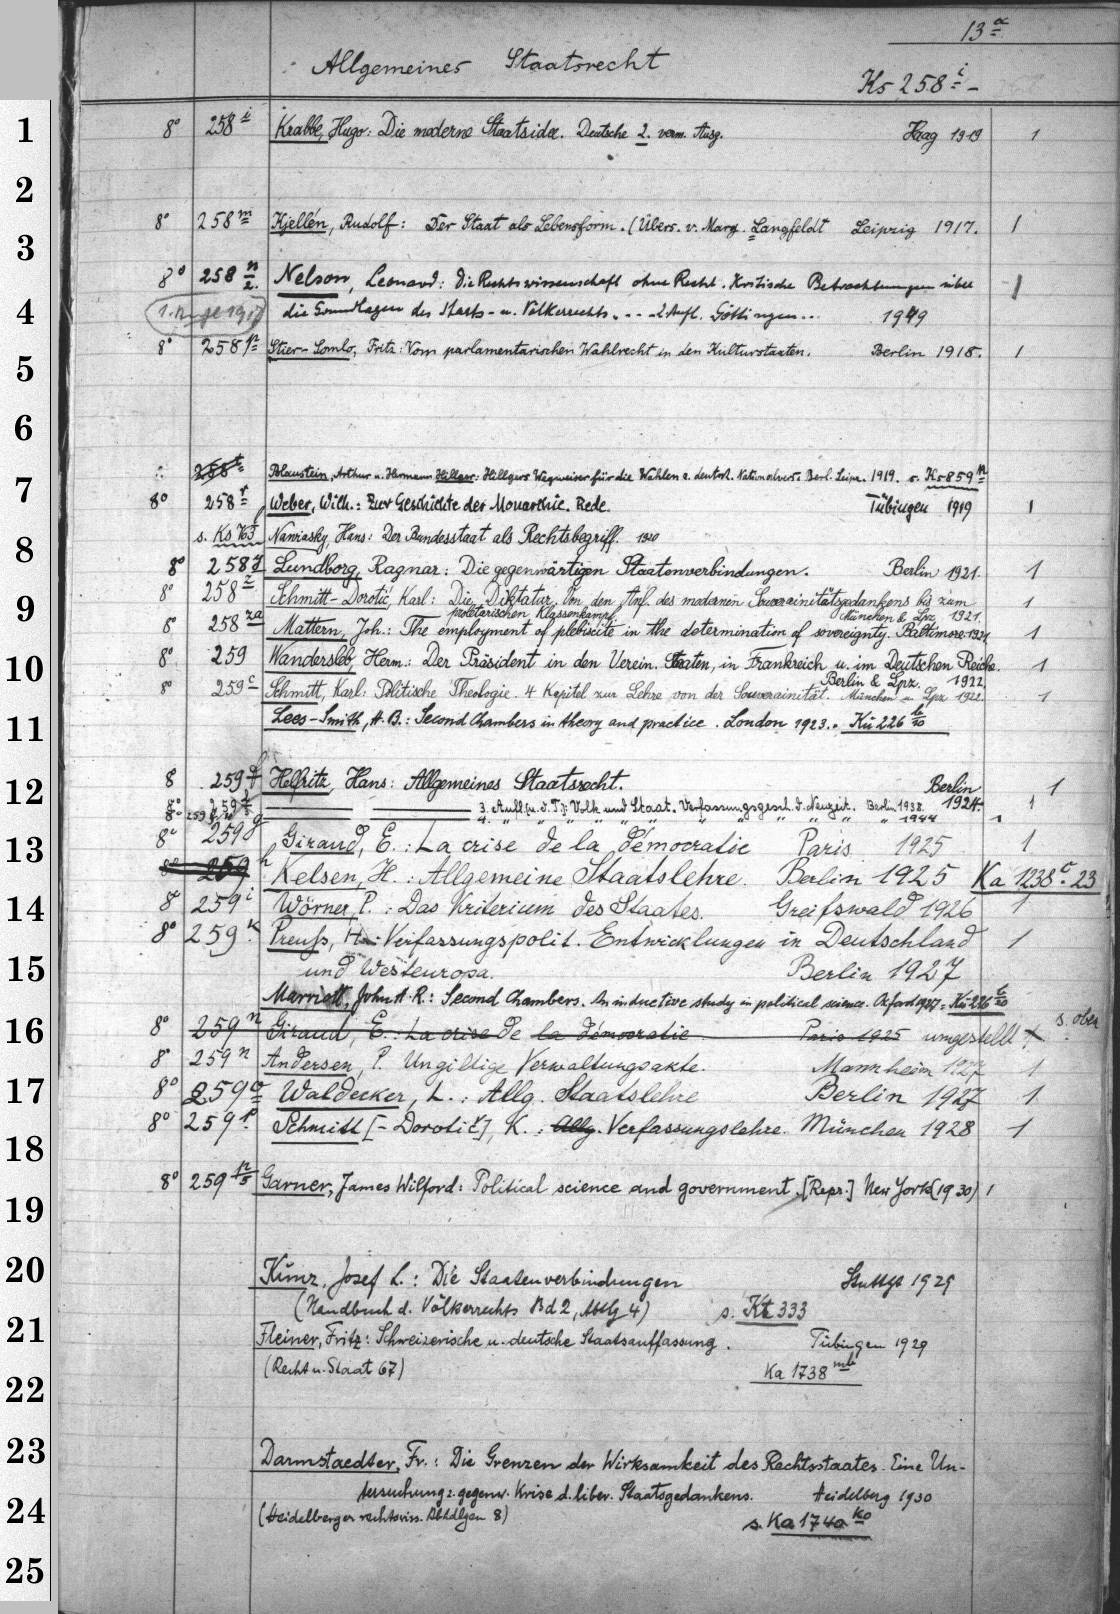 13 a
Allgemeines Staatsrecht
Ks 258 i -
1 8° 258 i Krabbe, Hugo: Die moderne Staatsidee. Deutsche 2. verm. Ausg. Haag 1919 1
2
8° 258 m Kjellén, Rudolf: Der Staat als Lebensform. (Übers. v. Marg. Langfeldt Leipzig 1917. 1
3
8° 258 n/2. Nelson, Leonard: Die Rechtswissenschaft ohne Recht. Kritische Betrachtungen über 1
4 die Grundlagen des Staats- u. Völkerrechts. - - - 2. Aufl. Göttingen... 1949
8° 258 p Stier-Somlo, Fritz: Vom parlamentarischen Wahlrecht in den Kulturstaaten. Berlin 1918. 1
5
6
258 t Blaustein, Arthur u. Hermann Hillger: Hillgers Wegweiser für die Wahlen z. deutsch. Nationalvers. Berl. Leipz. 1919. s. Ks 859 n
7
8° 258 r Weber, Wilh.: Zur Geschichte der Monarchie. Rede. Tübingen 1919 1
s. Ks 763 f Nawiasky, Hans: Der Bundesstaat als Rechtsbegriff. 1920
8
8° 258 y Lundborg, Ragnar: Die gegenwärtigen Staatenverbindungen. Berlin 1921. 1
8° 258 z Schmitt-Dorotić, Karl: Die Diktatur. Von den Anf. des modernen Souveränitätsgedankens bis zum 1
9 proletarischen Klassenkampf. München & Lpz. 1921.
8° 258 za Mattern, Joh.: The employment of plebiscite in the determination of sovereignty. Baltimore 1921 1
10 8° 259 Wandersleb, Herm.: Der Präsident in den Verein. Staaten, in Frankreich u. im Deutschen Reiche. 1
Berlin & Lpz. 1922.
8° 259 c Schmitt, Karl: Politische Theologie. 4 Kapitel zur Lehre von der Souveränität. München u. Lpz. 1922. 1
11 Lees-Smith, H. B.: Second Chambers in theory and practice. London 1923. = Kü 226 b/10
12 8 259 f Helfritz, Hans: Allgemeines Staatsrecht. Berlin 1924. 1
8° 259 f 3. Aufl. (u. d. T.): Volk und Staat. Verfassungsgesch. d. Neuzeit. Berlin 1938. 1
8° 259 4. " " " " " " " " 1944 1
13 8° 259 g Giraud, E.: La crise de la démocratie Paris 1925 1
8° 259 h Kelsen, H.: Allgemeine Staatslehre. Berlin 1925 Ka 1238 c. 23
14 8° 259 i Wörner, P.: Das Kriterium des Staates. Greifswald 1926 1
8° 259 k Preuß, H.: Verfassungspolit. Entwicklungen in Deutschland 1
15 und Westeuropa. Berlin 1927
Marriott, John A. R.: Second Chambers. An inductive study in political science. Oxford 1927 = Kü 226 b/20
16 8° 259 n Giraud, E.: La crise de la démocratie Paris 1925 umgestellt s. oben
8° 259 n Andersen, P. Ungiltige Verwaltungsakte. Mannheim 1927 1
17 8° 259 o Waldecker, L.: Allg. Staatslehre Berlin 1927 1
8° 259 p Schmitt [-Dorotić], K.: Allg. Verfassungslehre. München 1928 1
18
8° 259 p/5 Garner, James Wilford: Political science and government. [Repr.] New York (1930) 1
19
20 Kunz, Josef L.: Die Staatenverbindungen Stuttgt 1929
(Handbuch d. Völkerrechts Bd 2, Abtlg 4) s. Kt 333
21 Fleiner, Fritz: Schweizerische u. deutsche Staatsauffassung. Tübingen 1929
(Recht u. Staat 67) Ka 1738 mb
22
23 Darmstaedter, Fr.: Die Grenzen der Wirksamkeit des Rechtsstaates. Eine Un-
tersuchung z. gegenw. Krise d. liber. Staatsgedankens. Heidelberg 1930
24 (Heidelberger rechtswiss. Abhdlgen 8) s. Ka 1740 ko
25